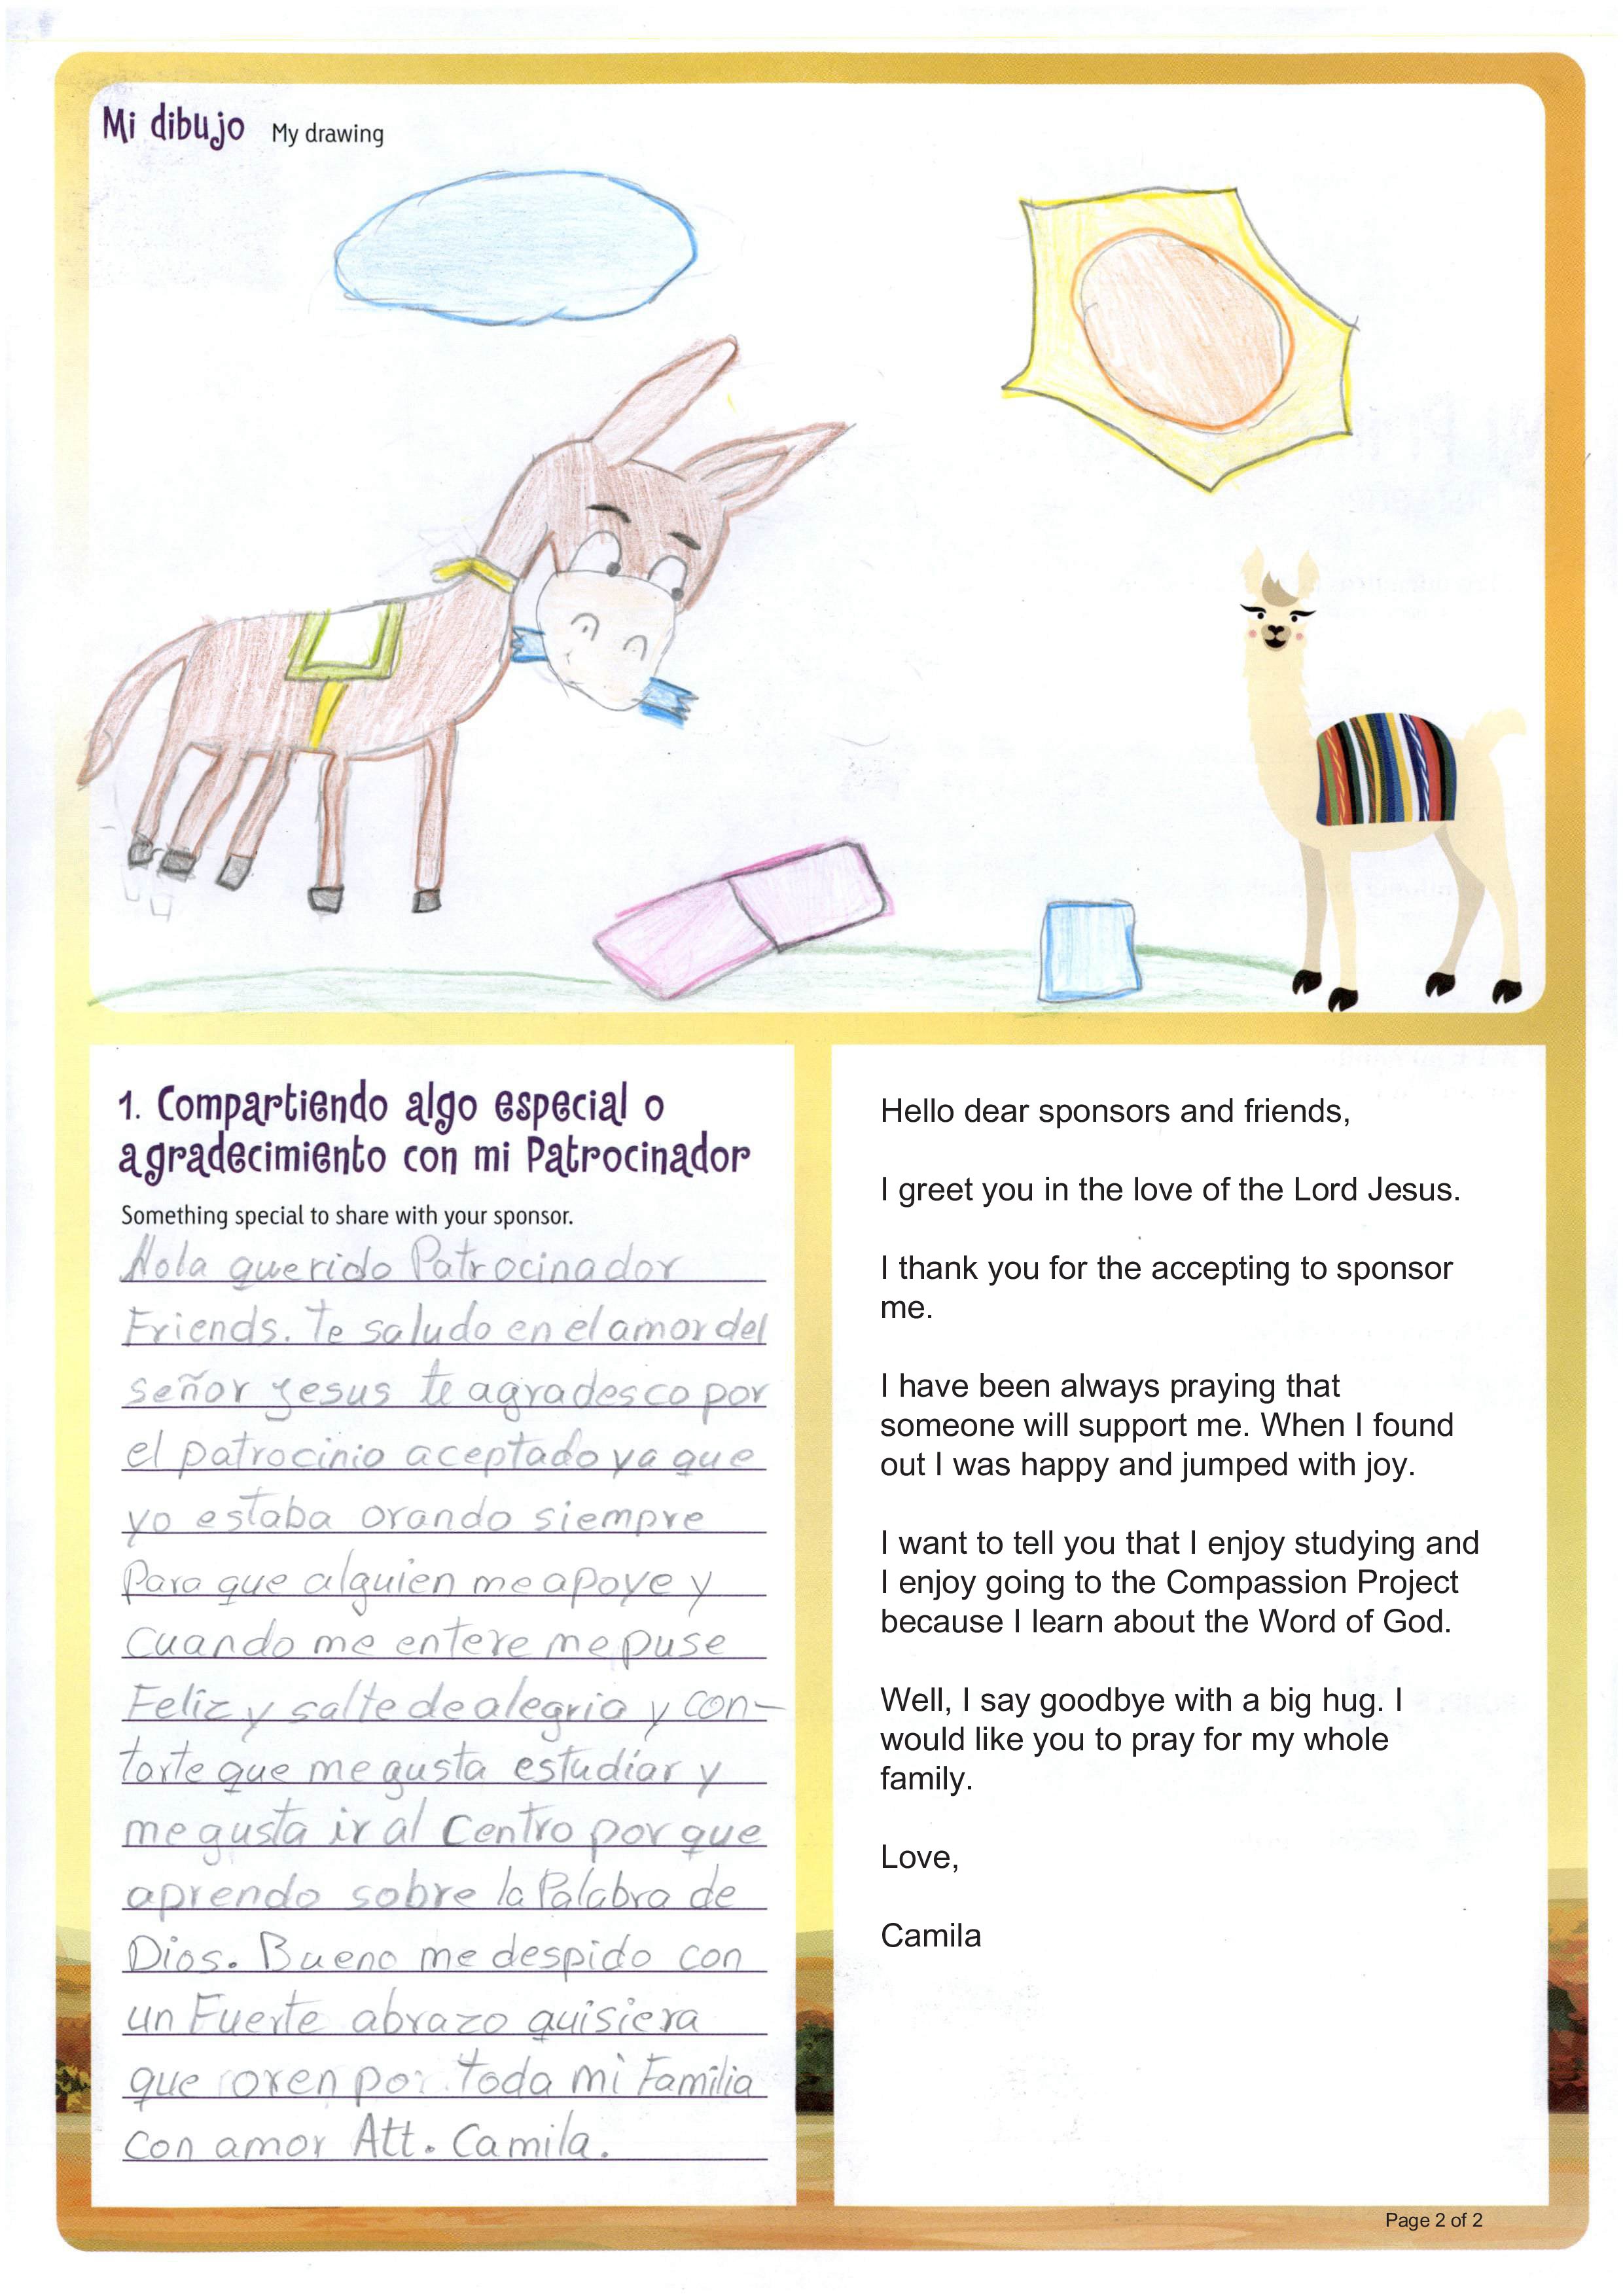 Mi dibujo My drawing
1. Compartiendo algo especial o
agradecimiento con mi Patrocinador
Something special to share with your sponsor.
Hola querido Patrocinador
Friends. Te saludo en el amor del
señor Jesus te agradesco por
el patrocinio aceptado ya que
yo estaba orando siempre
Para que alguien me apoye y
Cuando me entere me puse
Feliz y salte de alegria y con-
tarte que me gusta estudiar y
me gusta ir al Centro por que
aprendo sobre la Palabra de
Dios. Bueno me despido con
un Fuerte abrazo quisiera
que oren por toda mi Familia
con amor Att. Camila.
Hello dear sponsors and friends,
I greet you in the love of the Lord Jesus.
I thank you for the accepting to sponsor
me.
I have been always praying that
someone will support me. When I found
out I was happy and jumped with joy.
I want to tell you that I enjoy studying and
I enjoy going to the Compassion Project
because I learn about the Word of God.
Well, I say goodbye with a big hug. I
would like you to pray for my whole
family.
Love,
Camila
Page 2 of 2